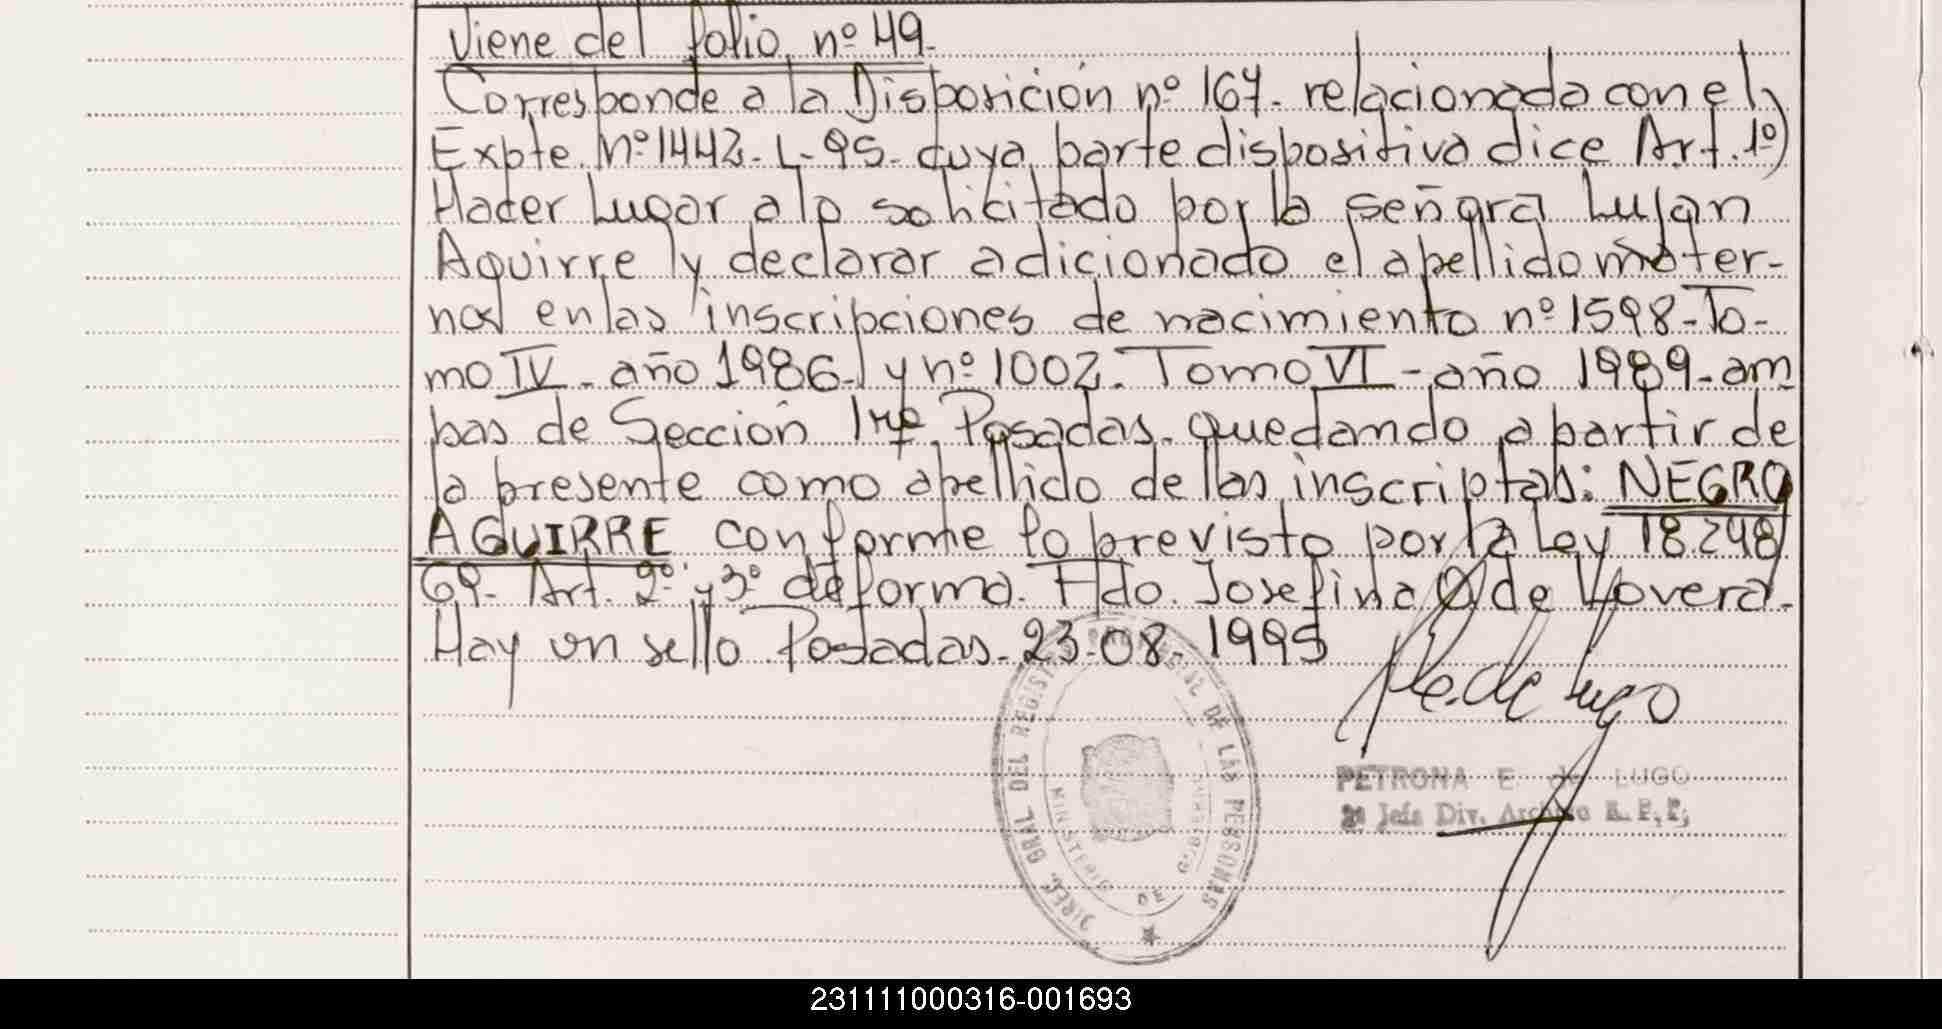 Viene del folio nº 49.
Corresponde a la Disposición nº 167. relacionada con el
Expte. Nº 1442. L-95. cuya parte dispositiva dice Art. 1º)
Hacer Lugar a lo solicitado por la señora Lujan
Aguirre y declarar adicionado el apellido mater-
nal en las inscripciones de nacimiento nº 1598-To-
mo IV. año 1986. y nº 1002. Tomo VI - año 1989. am
bas de Sección 1ra. Posadas. quedando a partir de
la presente como apellido de las inscriptas: NEGRO
AGUIRRE conforme lo previsto por la Ley 18.248/
69. Art. 2º y 3º de forma. Fdo. Josefina O de Lovera.
Hay un sello Posadas. 23-08-1995
P. E. de Lugo
DIREC. GRAL DEL REGISTRO PROVINCIAL DE LAS PERSONAS
MINISTERIO DE GOBIERNO
PETRONA E. de LUGO
2º Jefa Div. Archivo R. P. P.
231111000316-001693